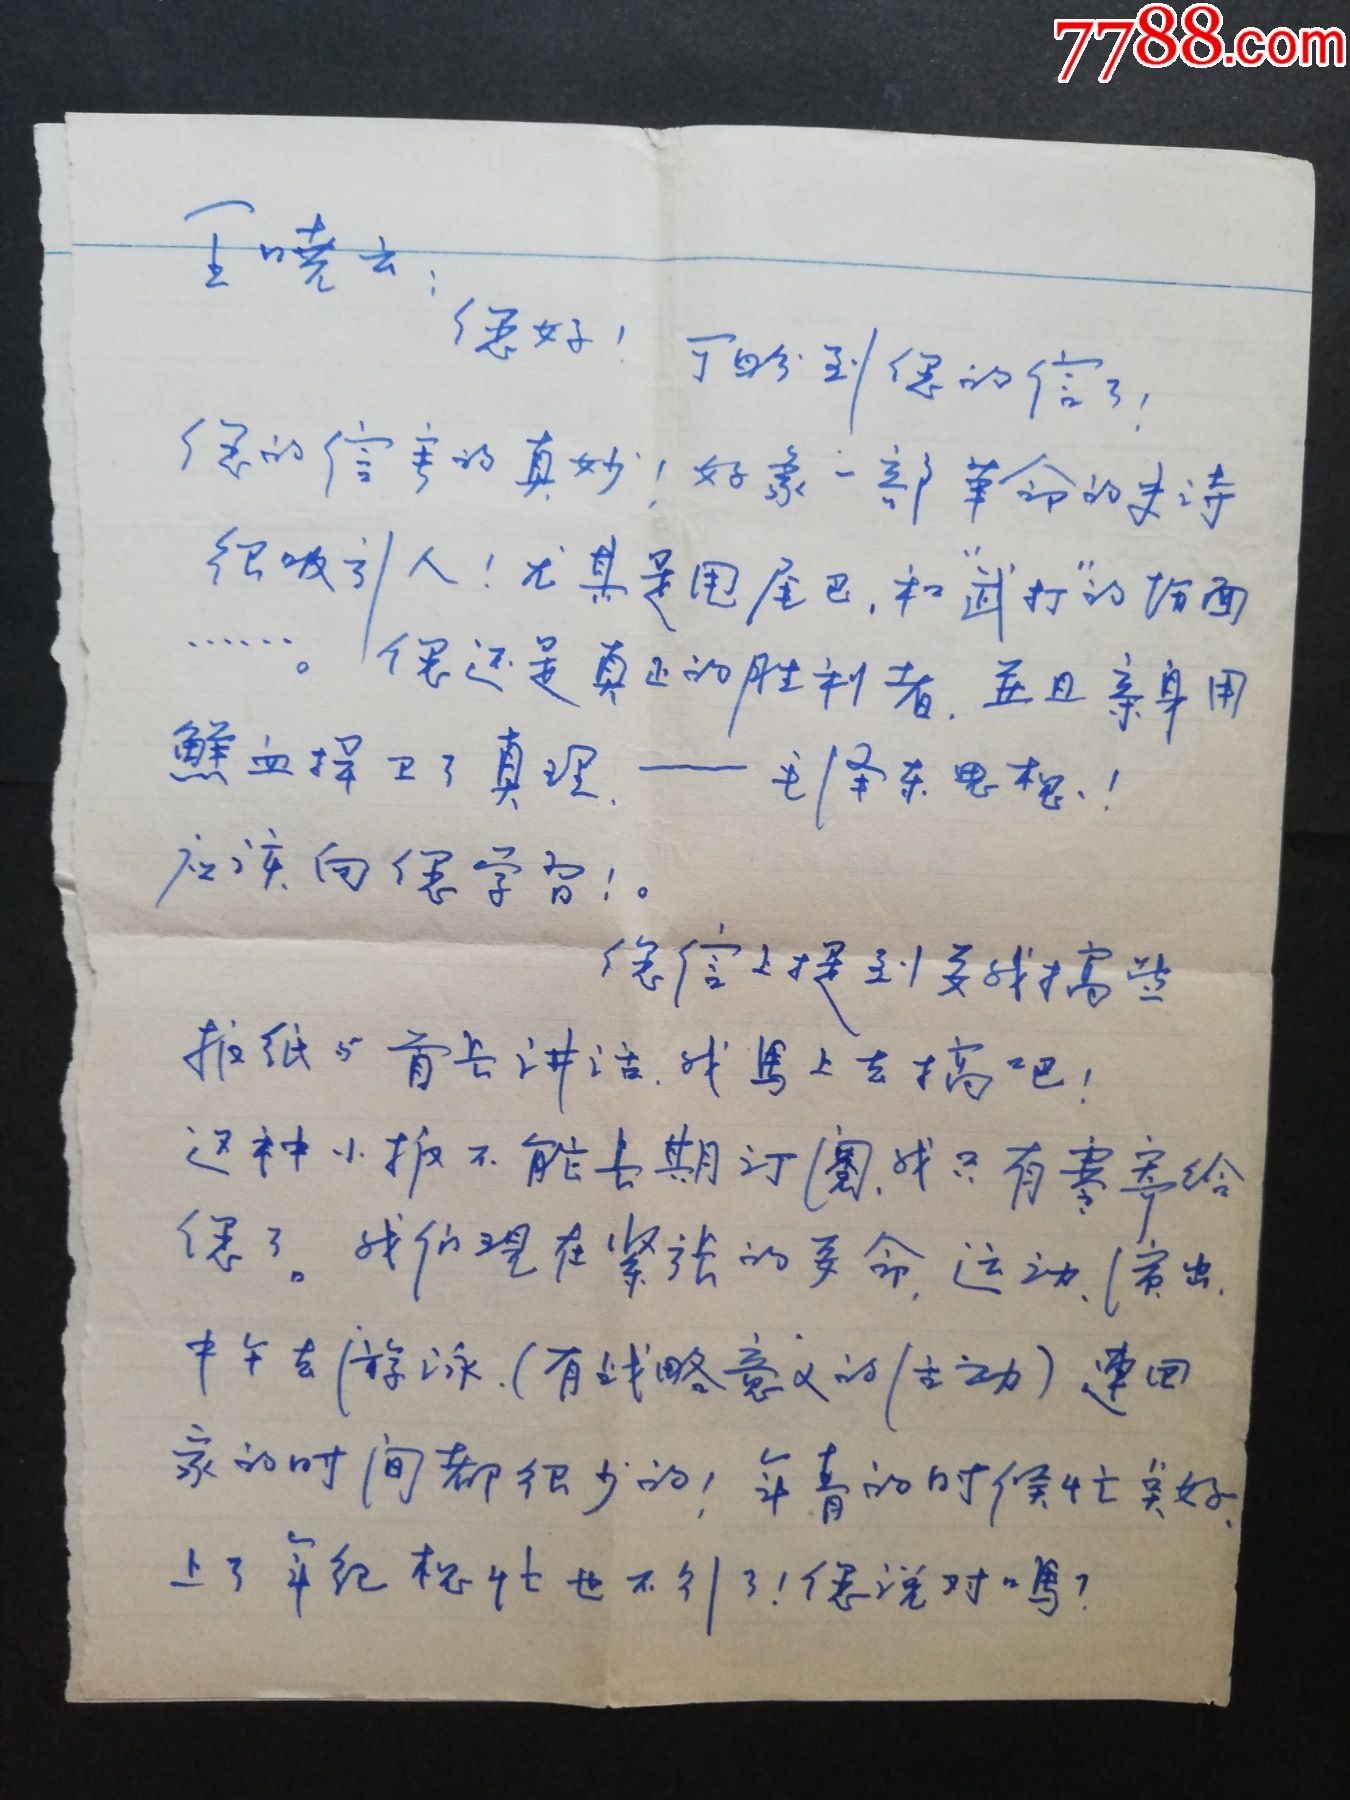 7788.com
王晓云：
您好！可盼到您的信了！
您的信写的真妙！好象一部革命的史诗
很吸引人！尤其是甩尾巴，和“武打”的场面
……。您还是真正的胜利者，並且亲身用
鲜血捍卫了真理，——毛泽东思想！
应该向您学习！。
您信上提到要我搞些
报纸与首长讲话，我馬上去搞吧！
这种小报不能长期订阅，我只有零寄给
您了。我们现在紧张的革命，运动，演出，
中午去游泳，（有战略意义的活动）連回
家的时间都很少的！年青的时候忙些好，
上了年纪想忙也不行了！您说对嗎？